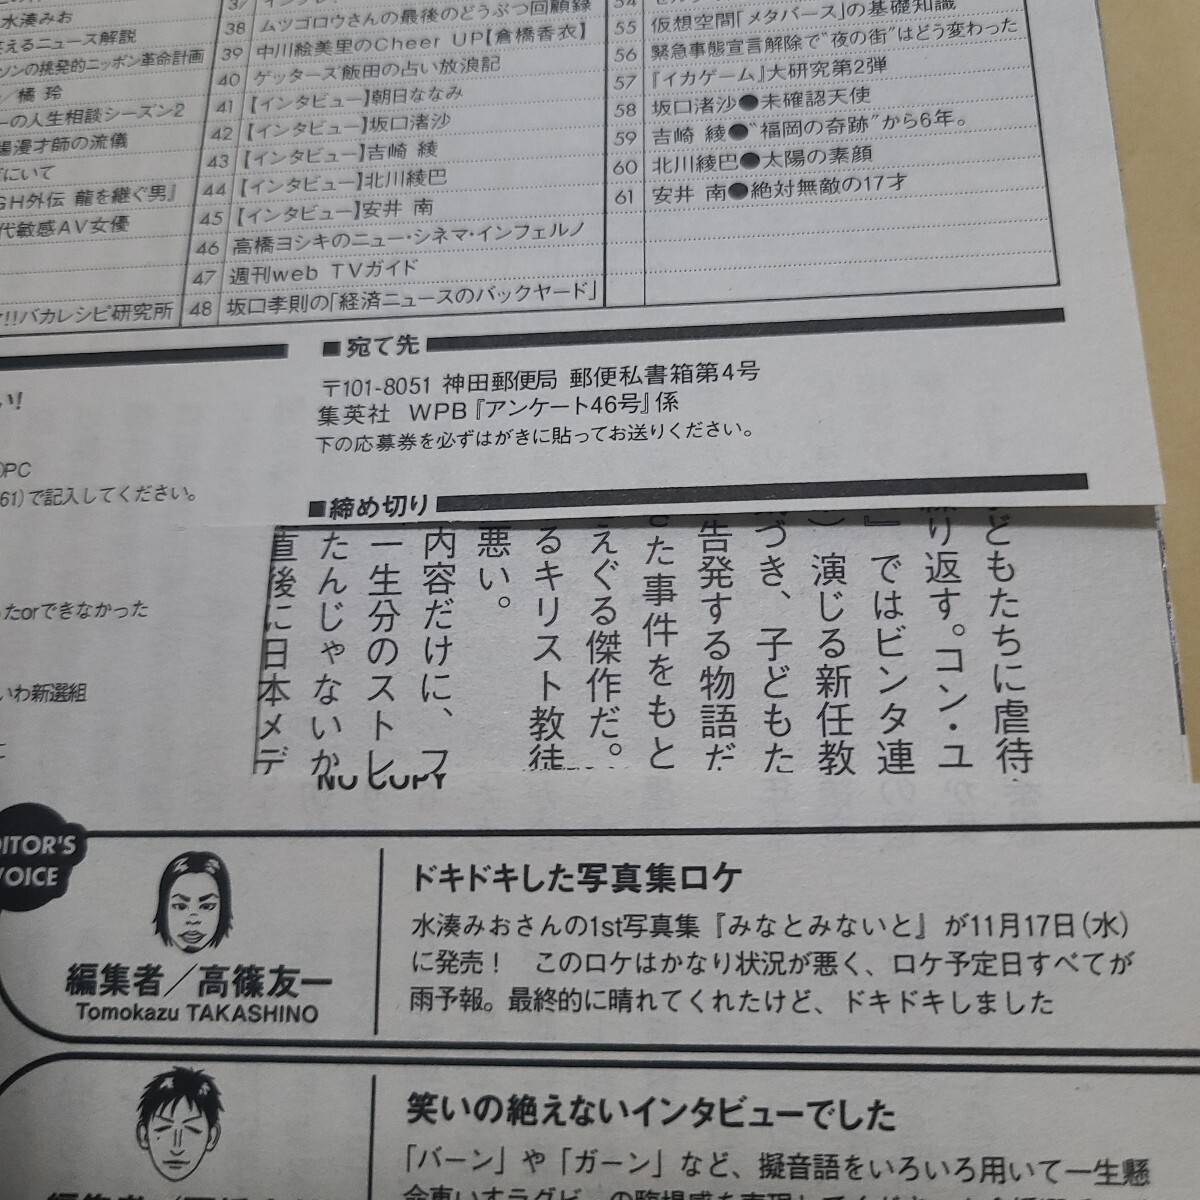 水湊みお
えるニュース解説
ソンの挑発的ニッポン革命計画
／橘 玲
ーの人生相談シーズン2
場漫才師の流儀
にいて
GH外伝 龍を継ぐ男』
代敏感AV女優
!!バカレシピ研究所
37
38 ムツゴロウさんの最後のどうぶつ回顧録
39 中川絵美里のCheer UP【倉橋香衣】
40 ゲッターズ飯田の占い放浪記
41 【インタビュー】朝日ななみ
42 【インタビュー】坂口渚沙
43 【インタビュー】吉崎 綾
44 【インタビュー】北川綾巴
45 【インタビュー】安井 南
46 高橋ヨシキのニュー・シネマ・インフェルノ
47 週刊web TVガイド
48 坂口孝則の「経済ニュースのバックヤード」
54
55 仮想空間「メタバース」の基礎知識
56 緊急事態宣言解除で“夜の街”はどう変わった
57 『イカゲーム』大研究第2弾
58 坂口渚沙●未確認天使
59 吉崎 綾●“福岡の奇跡”から6年。
60 北川綾巴●太陽の素顔
61 安井 南●絶対無敵の17才
い!
)PC
61)で記入してください。
ったorできなかった
いわ新選組
■宛て先
〒101-8051 神田郵便局 郵便私書箱第4号
集英社 WPB『アンケート46号』係
下の応募券を必ずはがきに貼ってお送りください。
■締め切り
どもたちに虐待
り返す。コン・ユ
』ではビンタ連
）演じる新任教
づき、子どもた
告発する物語だ
た事件をもと
えぐる傑作だ。
るキリスト教徒
悪い。
内容だけに、フ
一生分のストレ
たんじゃないか
直後に日本メデ
NO COPY
DITOR'S
VOICE
編集者／高篠友一
Tomokazu TAKASHINO
ドキドキした写真集ロケ
水湊みおさんの1st写真集『みなとみないと』が11月17日（水）
に発売！ このロケはかなり状況が悪く、ロケ予定日すべてが
雨予報。最終的に晴れてくれたけど、ドキドキしました
笑いの絶えないインタビューでした
「バーン」や「ガーン」など、擬音語をいろいろ用いて一生懸
命車いすラグビーの臨場感を表現してくださ